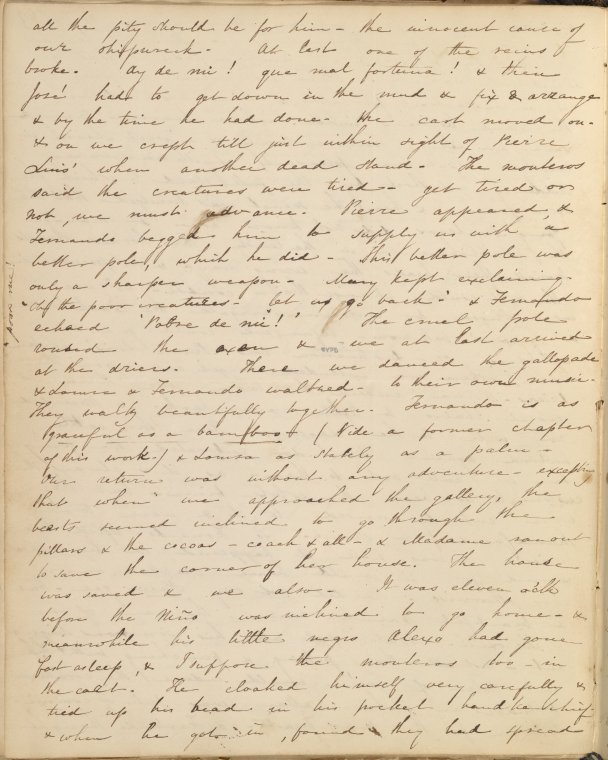 all the pity should be for him - the innocent cause of
our shipwreck. At last one of the reins
broke. Ay de mi! que mal fortuna! & then
José had to get down in the mud & fix & arrange
& by the time he had done - the cart moved on -
& on we crept till just within sight of Pierre
Luis' when another dead stand - The monteros
said the creatures were tired - get tired or
not, we must advance. Pierre appeared, &
Fernando begged him to supply us with a
better pole, which he did - This better pole was
only a sharper weapon - Mary kept exclaiming -
"Oh the poor creatures - let us go back" & Fernando
echoed "Pobre de mi!" The cruel pole
roused the oxen & we at last arrived
at the driers. There we danced the gallopade
& Louisa & Fernando waltzed - to their own music.
They waltz beautifully together. Fernando is as
graceful as a bamboo - (Vide a former chapter
of this work) & Louisa as stately as a palm -
Our return was without any adventure - except
that when we approached the gallery, the
beasts seemed inclined to go through the
pillars & the cocoas - coach & all - & Madame ran out
to save the corner of her house. The house
was saved & we also - It was eleven o'clk
before the Niño was inclined to go home - &
meanwhile his little negro Alexo had gone
fast asleep, & I suppose the monteros too - in
the cart. He cloaked himself very carefully &
tied up his head in his pocket handkerchief
& when he got in, found they had spread
poor me!